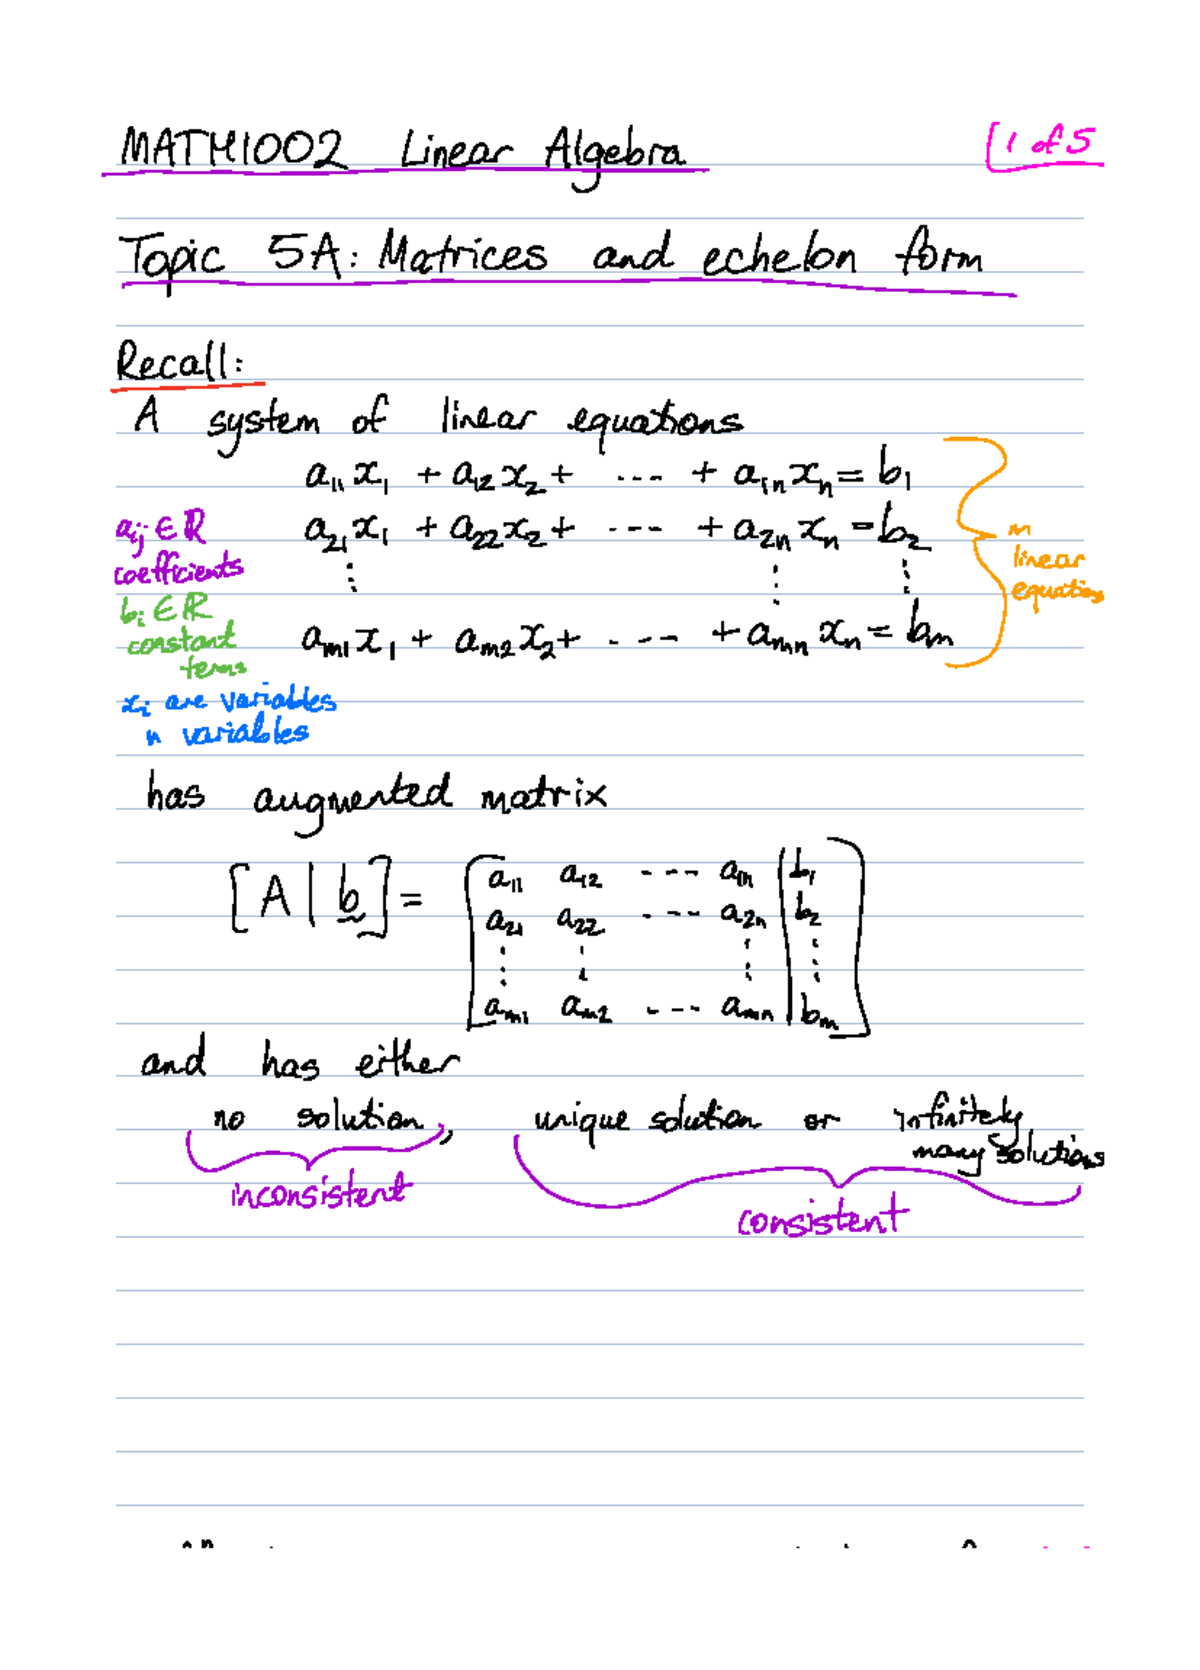 MATH1002 Linear Algebra
1 of 5
Topic 5A: Matrices and echelon form
Recall:
A system of linear equations
a₁₁x₁ + a₁₂x₂ + ---- + a₁ₙxₙ = b₁
a₂₁x₁ + a₂₂x₂ + ---- + a₂ₙxₙ = b₂
⋮ ⋮ ⋮
aₘ₁x₁ + aₘ₂x₂ + ---- + aₘₙxₙ = bₘ
m
linear
equations
aᵢⱼ ∈ ℝ
coefficients
bᵢ ∈ ℝ
constant
terms
xᵢ are variables
n variables
has augmented matrix
[A | b] =
a₁₁ a₁₂ ---- a₁ₙ | b₁
a₂₁ a₂₂ ---- a₂ₙ | b₂
⋮ ⋮ ⋮ ⋮
aₘ₁ aₘ₂ ---- aₘₙ | bₘ
and has either
no solution, unique solution or infinitely
many solutions
inconsistent
consistent